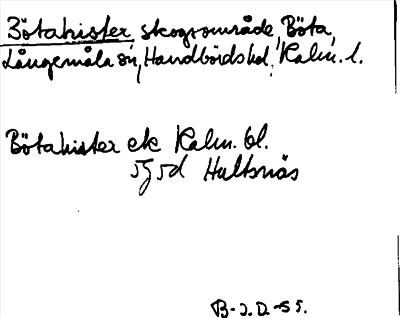 Bötahister skogsområde, Böta,
Långemåla sn, Handbörds hd, Kalm. l.
Bötahister ek Kalm. bl.
5g 5d Hultsnäs
B-J.D.-55.